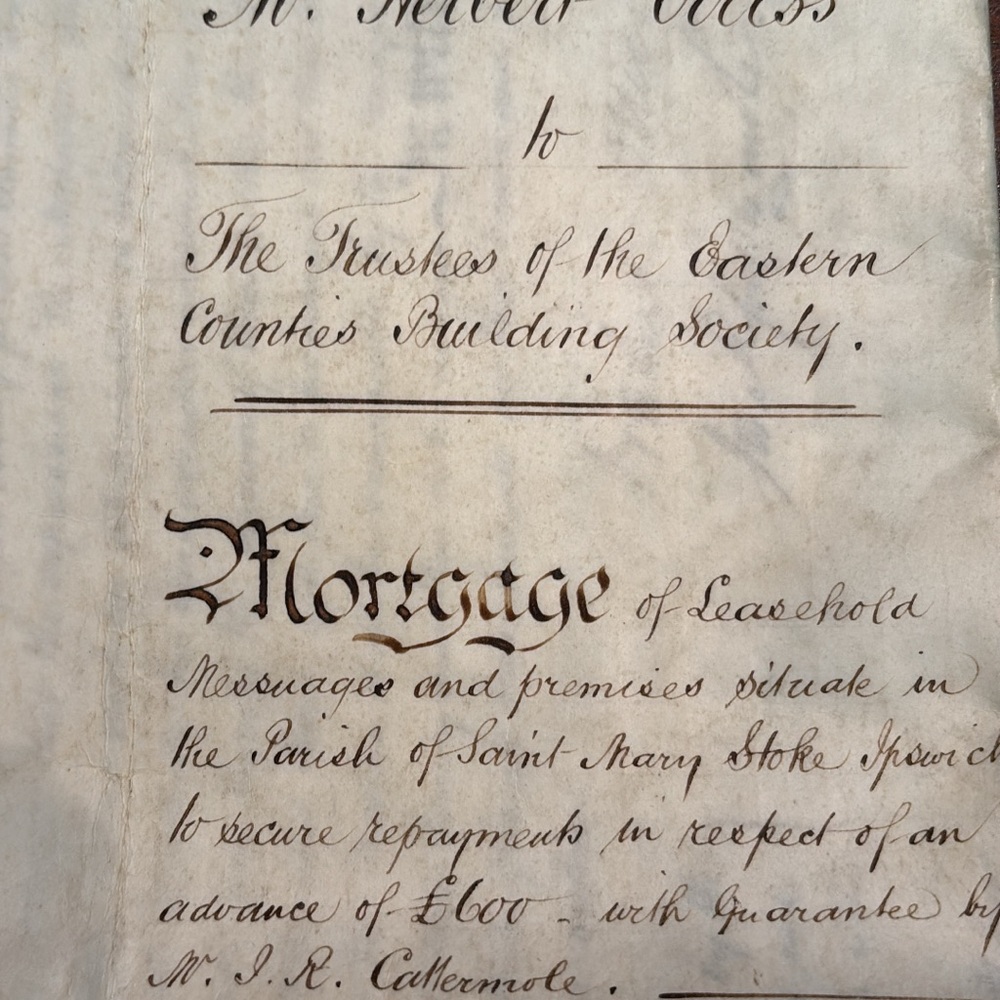 Mr. Herbert
to
The Trustees of the Eastern
Counties Building Society.
Mortgage of Leasehold
Messuages and premises situate in
the Parish of Saint Mary Stoke Ipswich
to secure repayments in respect of an
advance of £600 - with Guarantee by
Mr. I. R. Cattermole.